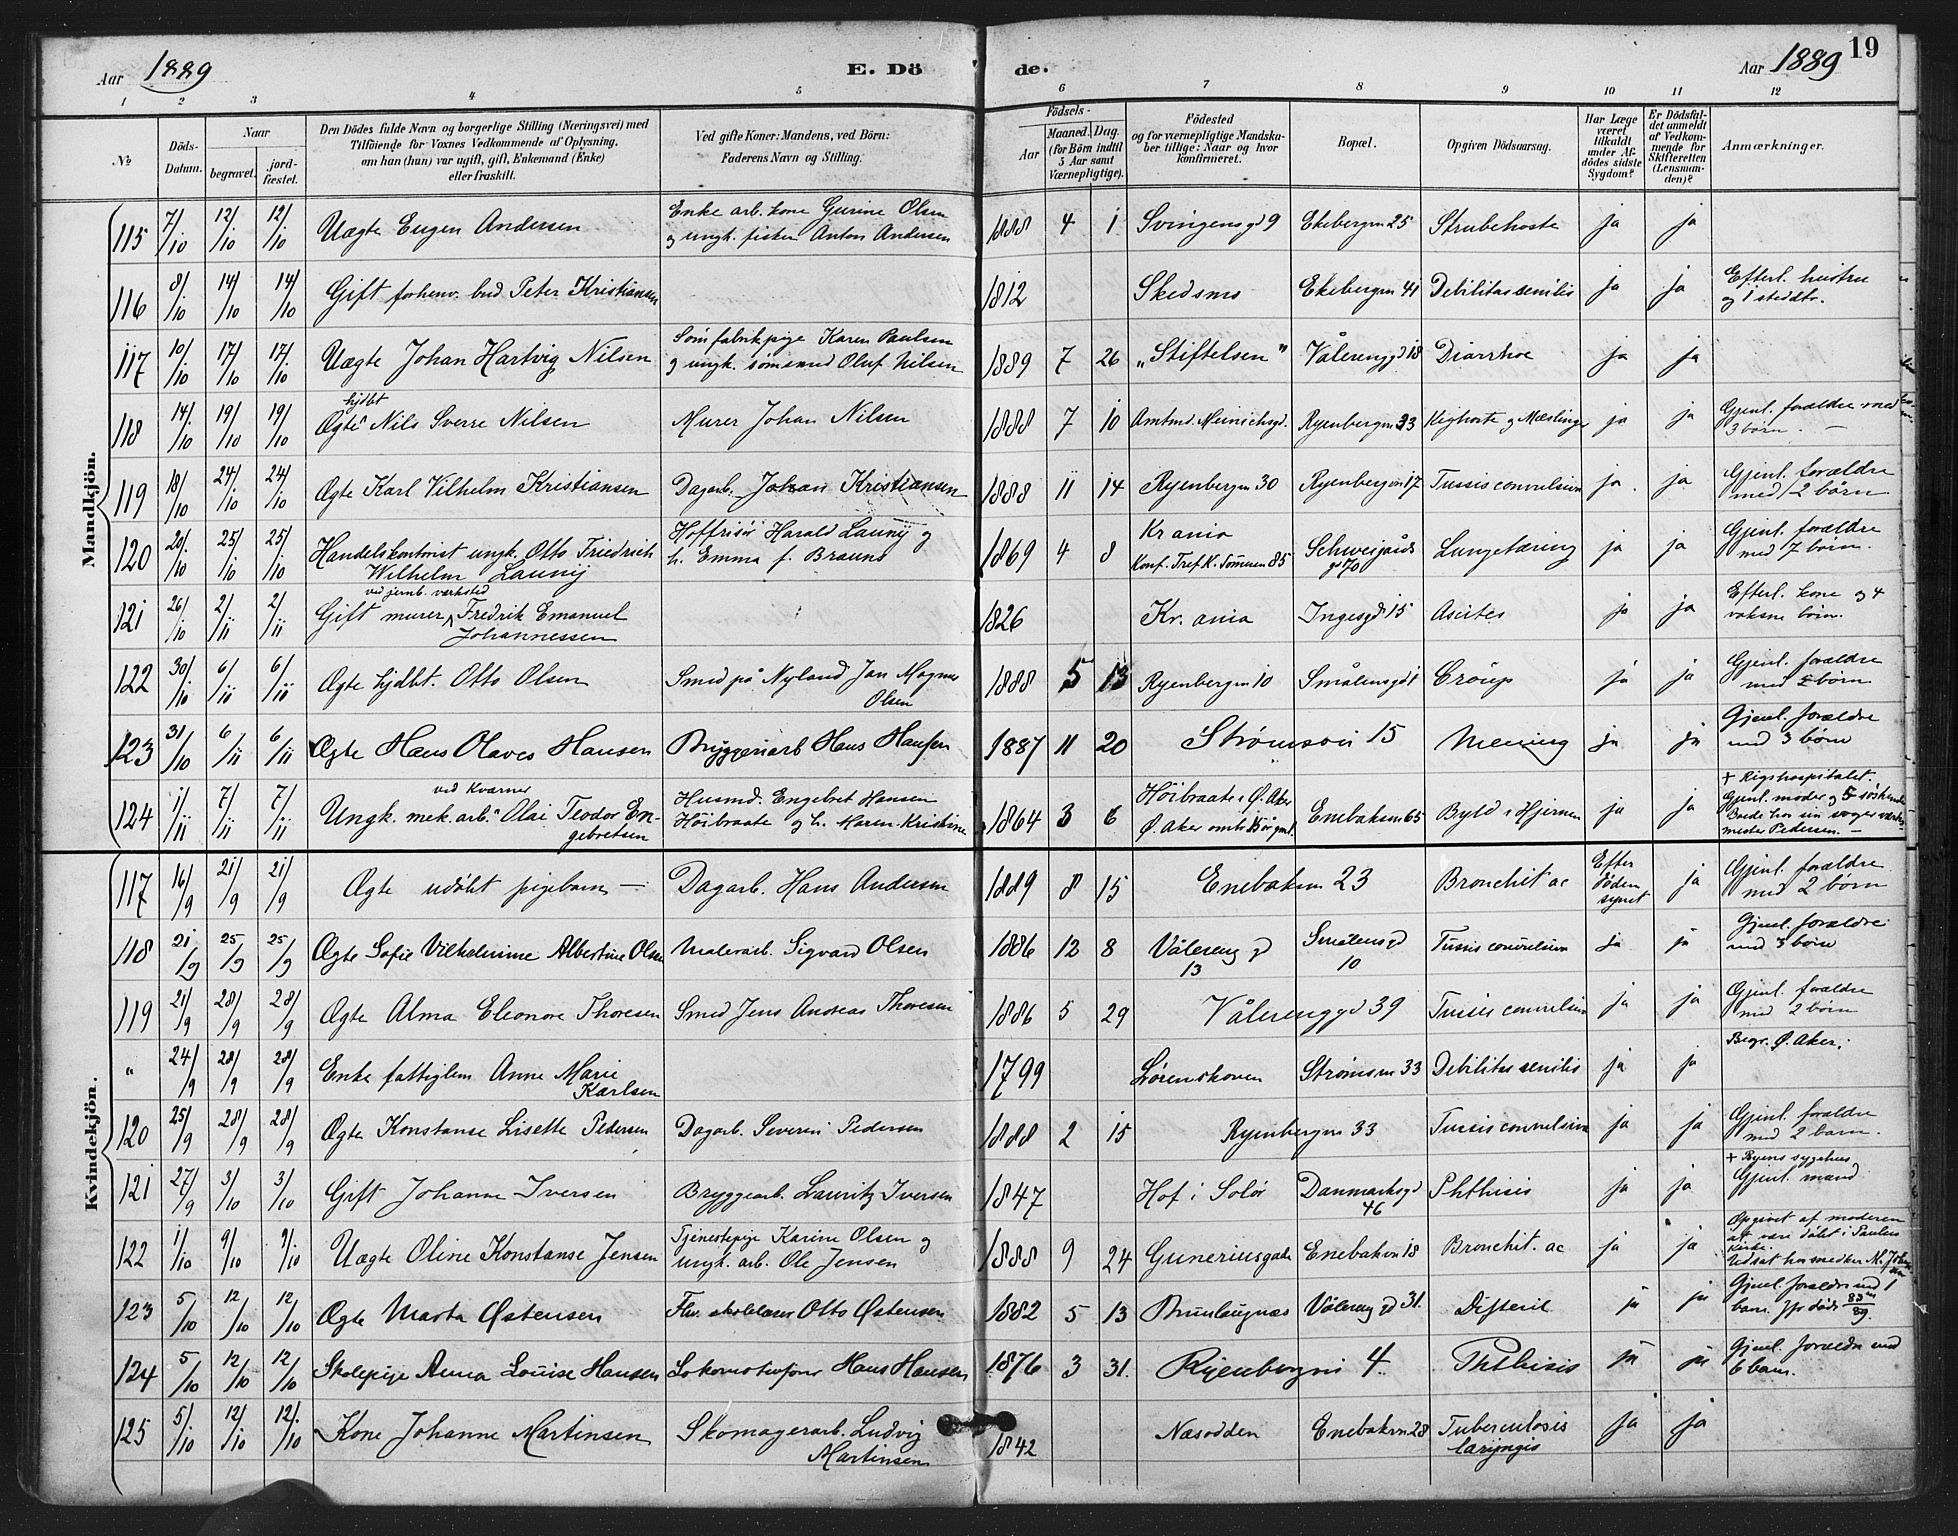 Aar 1889 E. Döde. Aar 1889 19
1 2 3 4 5 6 7 8 9 10 11 12
No
Döds-Datum.
Naar
begravet.
jord-fæstet.
Den Dödes fulde Navn og borgerlige Stilling (Næringsvei) med
Tilföiende for Voxnes Vedkommende af Oplysning,
om han (hun) var ugift, gift, Enkemand (Enke)
eller fraskilt.
Ved gifte Koner: Mandens, ved Börn:
Faderens Navn og Stilling.
Födsels-
Aar
Maaned. Dag.
(for Börn indtil
5 Aar samt
Værnepligtige).
Födested
og for værnepligtige Mandska-
ber tillige: Naar og hvor
konfirmeret.
Bopæl.
Opgiven Dödsaarsag.
Har Læge
været
tilkaldt
under Af-
dödes sidste
Sygdom?
Er Dödsfal-
det anmeldt
af Vedkom-
mende for
Skifteretten
(Lensman-
den)?
Anmærkninger.
Mandkjön.
115 7/10 12/10 12/10 Uægte Eugen Andersen Enke arb. kone Gurine Olsen
og ungk. fisker Anton Andersen 1888 4 1 Svingensgd 9 Ekebergvn 25 Strubehoste ja ja
116 8/10 14/10 14/10 Gift forhenv. bud Peter Kristiansen 1812 Skedsmo Ekebergvn 41 Debilitas senilis ja ja Efterl. hustru
og 1 steddtr.
117 10/10 17/10 17/10 Uægte Johan Hartvig Nilsen Sömfabrikpige Karen Paulsen
og ungk. sömsmed Oluf Nilsen 1889 7 26 „Stiftelsen" Vålerenggd 18 Diarrhoe ja ja
118 14/10 19/10 19/10 Ægte hjdbt Nils Sverre Nilsen Murer Johan Nilsen 1888 7 10 Amtmd. Meinichsgd. Ryenbergvn 33 Kighoste og Mæslinger ja ja Gjenl. forældre med
3 børn. —
119 18/10 24/10 24/10 Ægte Karl Vilhelm Kristiansen Dagarb. Johan Kristiansen 1888 11 14 Ryenbergvn 30 Ryenbergvn 17 Tussis convulsiva ja. ja Gjenl. forældre
med 2 børn
120 20/10 25/10 25/10 Handelskontorist ungk. Otto Friedrich
Wilhelm Launij Hoffrisör Harald Launij og
h. Emma f. Brauns 1869 4 8 Kr.ania
Konf. Tref. K. Sommeren 85 Schweigårds
gd 70 Lungetæring ja ja Gjenl. forældre
med 7 børn.
121 26/10 2/11 2/11 Gift murer ved jernb. værksted Fredrik Emanuel
Johannessen 1826 Kr.ania Ingesgd 15 Ascites ja ja Efterl. kone og 4
voksne børn.
122 30/10 6/11 6/11 Ægte hjdbt. Otto Olsen Smed på Nyland Jan Magnus
Olsen 1888 5 13 Ryenbergvn 10 Smålensgd 1 Croup ja ja Gjenl. forældre
med børn
123 31/10 6/11 6/11 Ægte Hans Olaves Hansen Bryggeriarb Hans Hansen 1887 11 20 Strømsvei 15 Mening ja ja Gjenl. forældre
med 3 børn
124 1/11 7/11 7/11 Ungk. mek. arb. ved Kværner Olai Teodor En-
gebretsen Husmd. Engebret Hansen
Höibraate og h. Maren Kristine 1864 3 6 Höibraate i Ø. Aker
Ø. Aker Enebakvn 65 Byld i Hjernen ja ja + Rigshospitalet.
Gjenl. moder og 5 søskende
Boede hos sin svoger værk-
mester Pedersen. —
Kvindekjön.
117 16/9 21/9 21/9 Ægte udöbt pigebarn — Dagarb. Hans Andersen 1889 8 15 Enebakvn 23 Bronchit ac Efter
döden
synet ja Gjenl. forældre
med 2 børn
118 21/9 25/9 25/9 Ægte Sofie Vilhelmine Albertine Olsen Malerarb. Sigvard Olsen 1886 12 8 Vålereng gd
13 Smålensgd
10 Tussis convulsiva ja ja Gjenl. forældre
med 3 børn
119 21/9 28/9 28/9 Ægte Alma Eleonore Thoresen Smed Jens Andreas Thoresen 1886 5 29 Vålerenggd 39 Tussis convulsiva ja ja Gjenl. forældre
med 2 børn
" 24/9 28/9 28/9 Enke fattiglem Anne Marie
Karlsen 1799 Lørenskoven Strømsvn 33 Debilitas senilis ja ja Begr. Ø. Aker.
120 25/9 28/9 28/9 Ægte Konstanse Lisette Pedersen Dagarb. Severin Pedersen 1888 2 15 Ryenbergvn 33 Tussis convulsiva ja ja Gjenl. forældre
med 2 barn.
121 27/9 3/10 3/10 Gift Johanne Iversen Bryggearb. Lauritz Iversen 1847 Hof i Solör Danmarksgd
46 Phthisis ja ja + Ryens sygehus
Gjenl. mand
122 1/10 9/10 9/10 Uægte Oline Konstanse Jensen Tjenestepige Karine Olsen og
ungk. arb. Ole Jensen 1888 9 24 Guneriusgade Enebakvn 18 Bronchit. ac ja ja Opgivet af moderen
at være döbt i Paulus
Kirke.
Udsat hos
123 5/10 12/10 12/10 Ægte Marta Østensen Fhv. skolelærer Otto Østensen 1882 5 13 Brunlaugnæs Vålereng gd 31. Difterit ja ja Gjenl. forældre med 1
barn.
124 5/10 12/10 12/10 Skolepige Anna Louise Hansen Lokomotivförer Hans Hansen 1876 3 31. Ryenbergvei 4 Phthisis ja ja Gjenl. forældre med
6 barn.
125 5/10 12/10 12/10 Kone Johanne Martinsen Skomagerarb. Ludvig
Martinsen 1842 Næsodden Enebakvn 28 Tuberculosis
laryngis ja ja